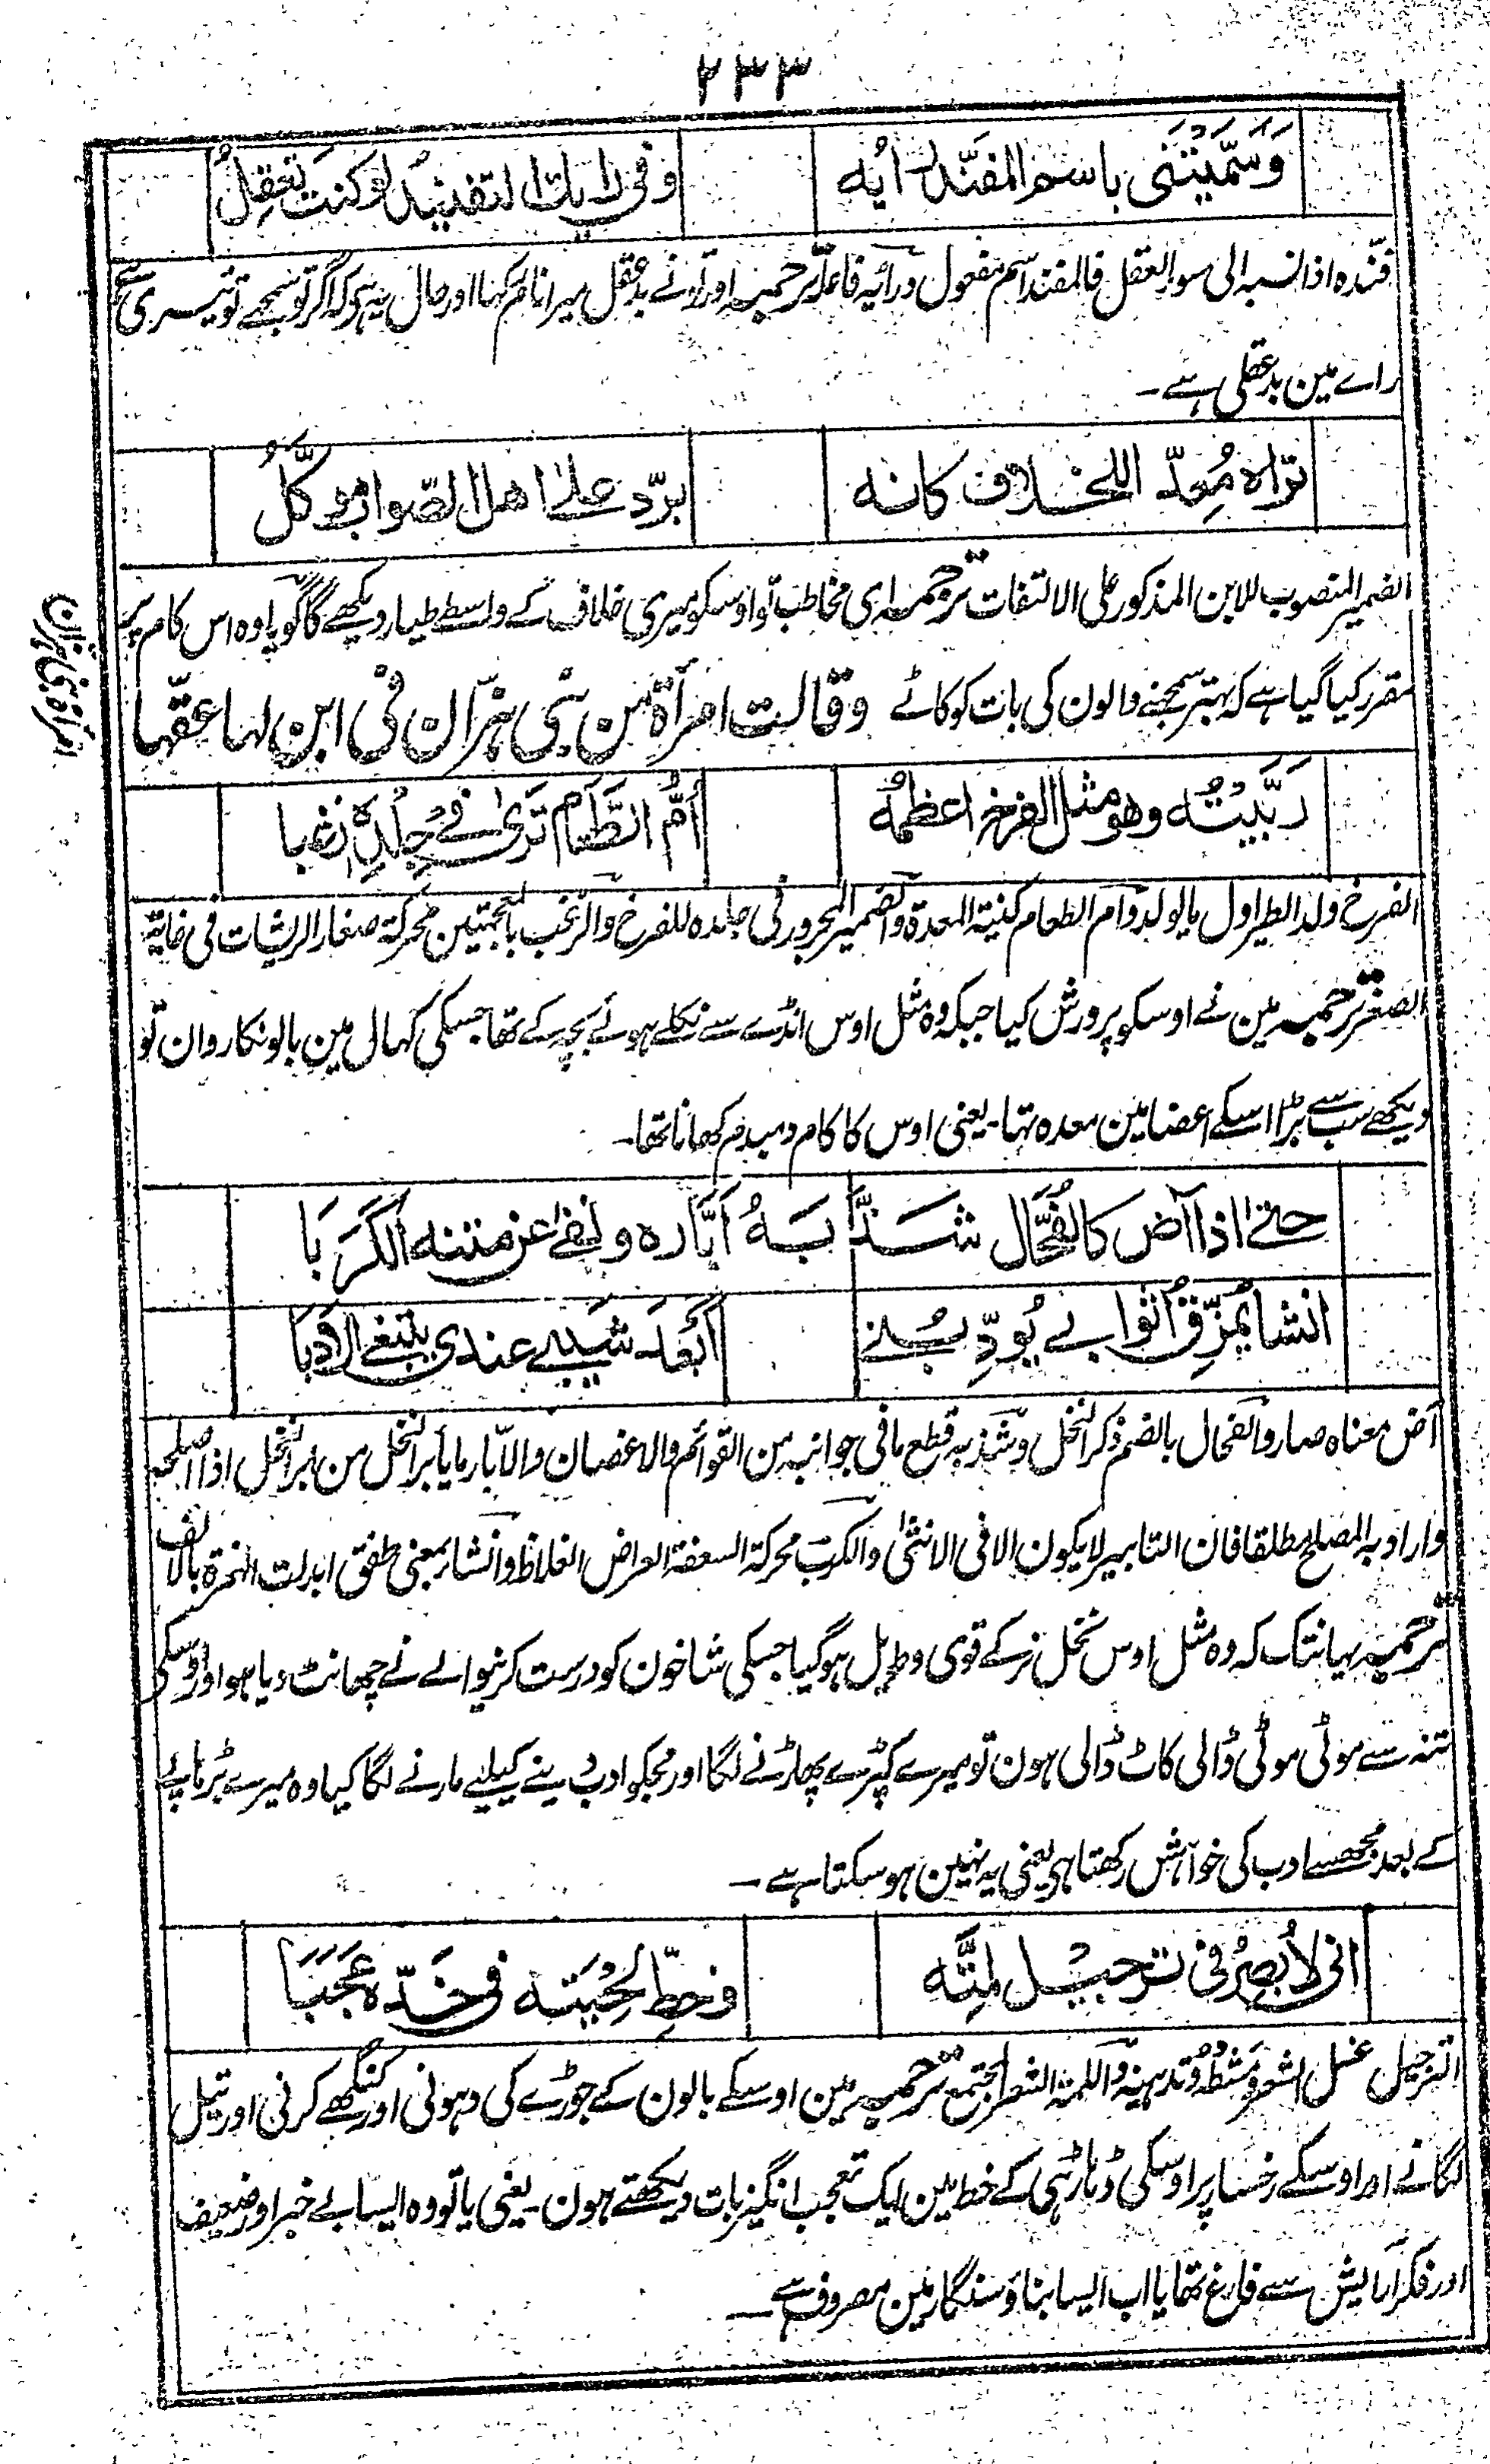 ۲۳۳
وَسَمَّيْتَنِي باسم المفنَّد رأيُه وفي رايك التفنيدُ لو كنتَ تعقِلُ
فنّده اذا نسبه الى سوء العقل فالمفند اسم مفعول ورائیه فاعله ترجمہ اور تو نے بد عقل میرا نام رکھا اور حال یہ ہی کہ اگر تو سمجھے تو تیری ہی
راے مین بد عقلی ہے۔
تراه مُعِدّا للخلاف كانه بردّ على اهل الصواب موكَّلُ
الضمیر المنصوب للابن المذکور علی الالتفات ترجمہ ای مخاطب تو اوسکو میری خلاف کے واسطے طیار دیکھے گا گویا وہ اس کام پر
امرأة من بنی ہزان
مقرر کیا گیا ہے کہ بہتر سمجھنے والون کی بات کو کاٹے وقالت امرأة من بنی ہزّان فی ابن لہا عقّہا
رَبَّيْتُه وهو مثل الفرخ اعظمُه اُمُّ الطَّعَام تَرَىٰ فِے جِلْدِهٖ زَغَبا
الفرخ ولد الطیر اول یا یولد وام الطعام کنیة المعدة والضمیر المجرور فی جلدہ للفرخ والزغب بالمعجمتین محرکة صغار الریشات فی غایة
الصغر ترجمہ مین نے اوسکو پرورش کیا جبکہ وہ مثل اوس انڈے سے نکلے ہوئے بچہ کے تھا جسکی کہال مین بالونکا روان تو
دیکھے سب سے بڑا اسکے اعضا مین معدہ تہا۔ یعنی اوس کا کام دمبدم کھانا تھا۔
حتے اذا آض كالفُحَّال شَذَّبَهُ اَبَّاره ونفے عن متنه الكَرَبَا
انشا يُمَزِّق اثوابے يُودِّبُنے اَبَعدَ شيبے عندي يبتغي الادَبا
آض معناہ صار والفحال بالضم ذکر النخل وشذبہ قطع ما فی جوانبہ من القوائم والاغصان والاٰبار ما یأبر النخل من ابر النخل اذا اصلحہ
واراد بہ المصلح مطلقا فان التابیر لا یکون الا فی الانثیٰ والکرب محرکة السعفة العراض الغلاظ وانشا بمعنی طفق ابدلت الہمزة بالالف
ترجمہ یہانتک کہ وہ مثل اوس نخل نر کے قوی وطویل ہوگیا جسکی شاخون کو درست کرنیوالے نے چھانٹ دیا ہو اور اوسکی
تنہ سے موٹی موٹی ڈالی کاٹ ڈالی ہون تو میرے کپڑے پھاڑنے لگا اور مجکو ادب دینے کیلیے مارنے لگا کیا وہ میرے بڑہاپے
کے بعد مجھسے ادب کی خواہش رکھتا ہی یعنی یہ نہین ہو سکتا ہے۔
انی لاُبصِرُ فی ترجیل لِمَّتِه وخطِّ لحْیَتِه فی خَدِّه عَجَبَا
الترجیل غسل الشعر ومشطہ وتدہینہ واللمة الشعر المجتمع ترجمہ مین اوسکے بالون کے جوڑے کی دہونی اور کنگھے کرنی اور تیل
لگانے اور اوسکے رخسار پر اوسکی ڈہاڑہی کے خط مین ایک تعجب انگیز بات دیکھتے ہون۔ یعنی یا تو وہ ایسا بے خبر اور ضعیف
اور فکر آرایش سے فارغ تھا یا اب ایسا بناؤ سنگار مین مصروف ہے۔